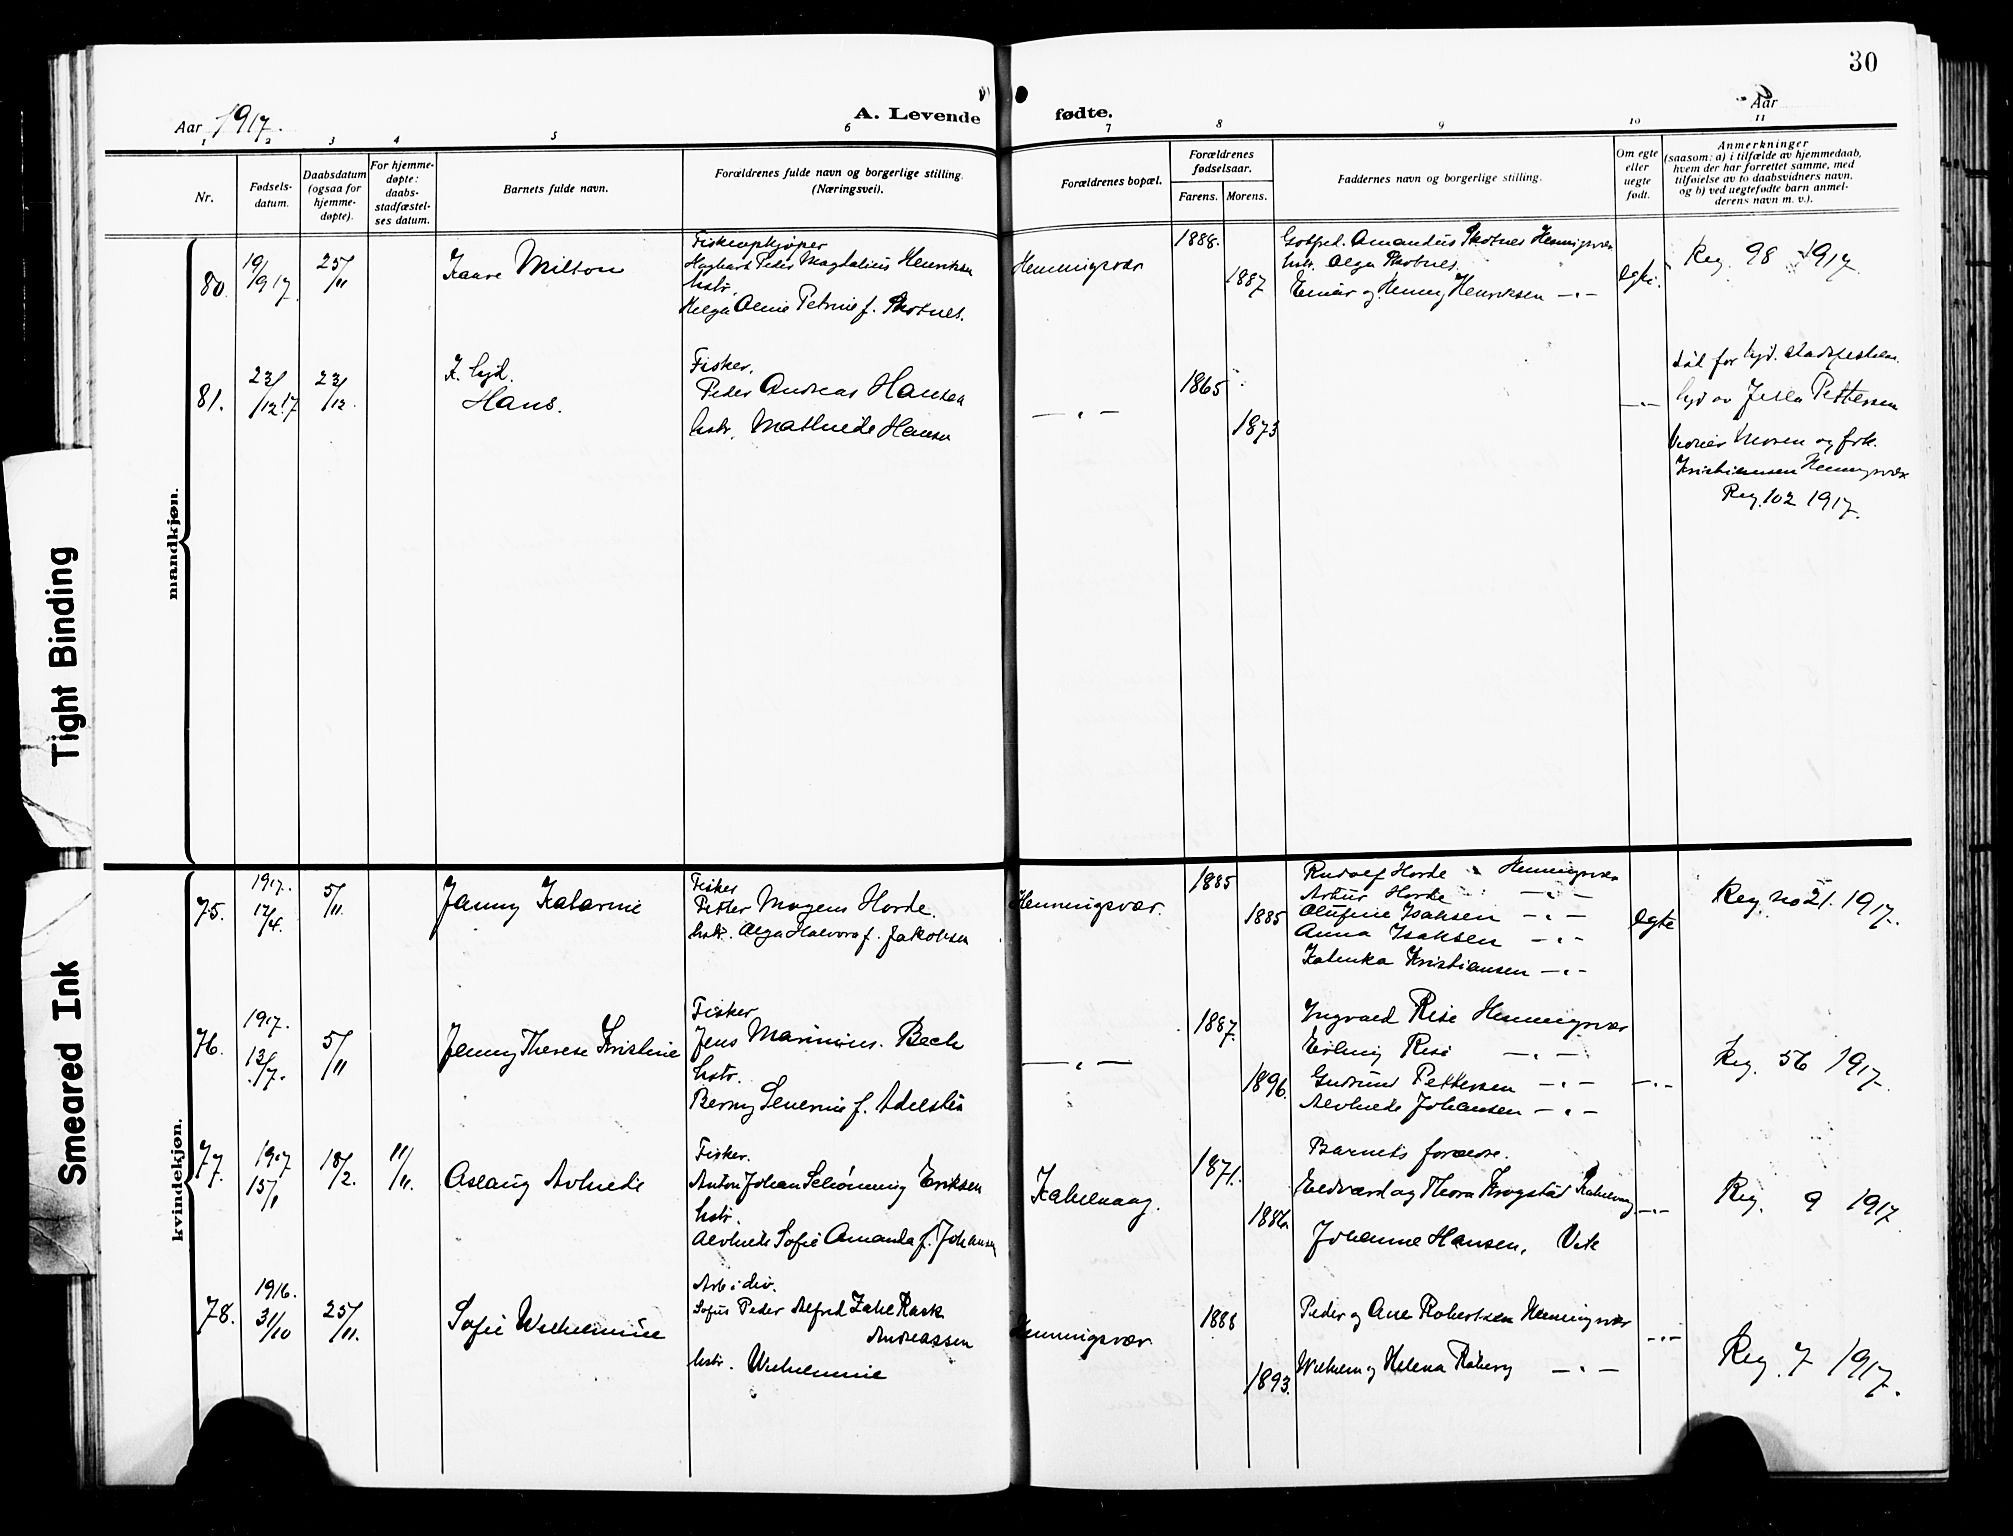 30
Aar 1917.
A. Levende fødte.
Aar
1 2 3 4 5 6 7 8 9 10 11
Nr.
Fødsels-
datum.
Daabsdatum
(ogsaa for
hjemme-
døpte).
For hjemme-
døpte:
daabs-
stadfæstel-
ses datum.
Barnets fulde navn.
Forældrenes fulde navn og borgerlige stilling.
(Næringsvei).
Forældrenes bopæl.
Forældrenes
fødselsaar.
Farens. Morens.
Faddernes navn og borgerlige stilling.
Om egte
eller
uegte
født.
Anmerkninger
(saasom: a) i tilfælde av hjemmedaab,
hvem der har forrettet samme, med
tilføielse av to daabsvidners navn,
og b) ved uegtefødte barn anmel-
derens navn m. v.).
mandkjøn.
80.
19/9 17
25/11
Kaare Milton
Fiskeopkjøper
Hagbart Peder Magdalius Henriksen
hstr.
Helga Anne Petrine f. Skotnes.
Henningsvær
1888.
1887
Gotfred Amandus Skotnes Henningsvær
hstr. Olga Skotnes
Einar og Henny Henriksen —"—
egte.
Reg. 98 1917
81.
23/12 17
23/12.
Hans.
Fisker.
Peder Andreas Hansen
hstr. Mathilde Hansen
—"—
1865
1873
—"—
død før hjd. stadfestelsen.
hjd av Pettersen
Vidner Moren og frk.
Kristiansen Henningsvær
Reg. 102 1917.
kvindekjøn.
75.
1917.
17/4.
5/11.
Jenny Katarine
Fisker
Petter Mogens Horde.
hstr. Olga Halvora f. Jakobsen
Henningsvær.
1885
1885
Rudolf Horde Henningsvær
Artur Horde —"—
Olufine Isaksen —"—
Anna Isaksen —"—
Katinka Kristiansen —"—
egte
Reg. no 21. 1917.
76.
1917.
13/7.
5/11
Jenny Therese Kristine
Fisker
Jens Marinius. Bech
hstr.
Berny Severine f. Adelsten
—"—
1887.
1896.
Ingvald Risø Henningsvær
Erling Risø —"—
Gudrun Pettersen —"—
Alvhilde Johansen —"—
—"—
Reg. 56 1917.
77.
1917
15/1
18/2.
11/11.
Aslaug Alvhilde
Fisker.
Anton Johan Schønning Eriksen
hstr.
Alvhilde Sofie Amanda f. Johansen
Kabelvaag.
1871.
1886.
Barnets forældre.
Edvard og Thora Krogstad Kabelvaag
Johanne Hansen, Vik
—"—
Reg. 9 1917
78.
1916.
31/10
25/11.
Sofie Wilhelmine
Arb. i div.
Sofus Peder Alfred Zahl Rask
Andreassen
hstr. Wilhelmine
Henningsvær
1888
1893.
Peder og Ane Robertsen Henningsvær
Wilhelm og Helena Råberg —"—
—"—
Reg. 7 1917.
Tight Binding
Smeared Ink